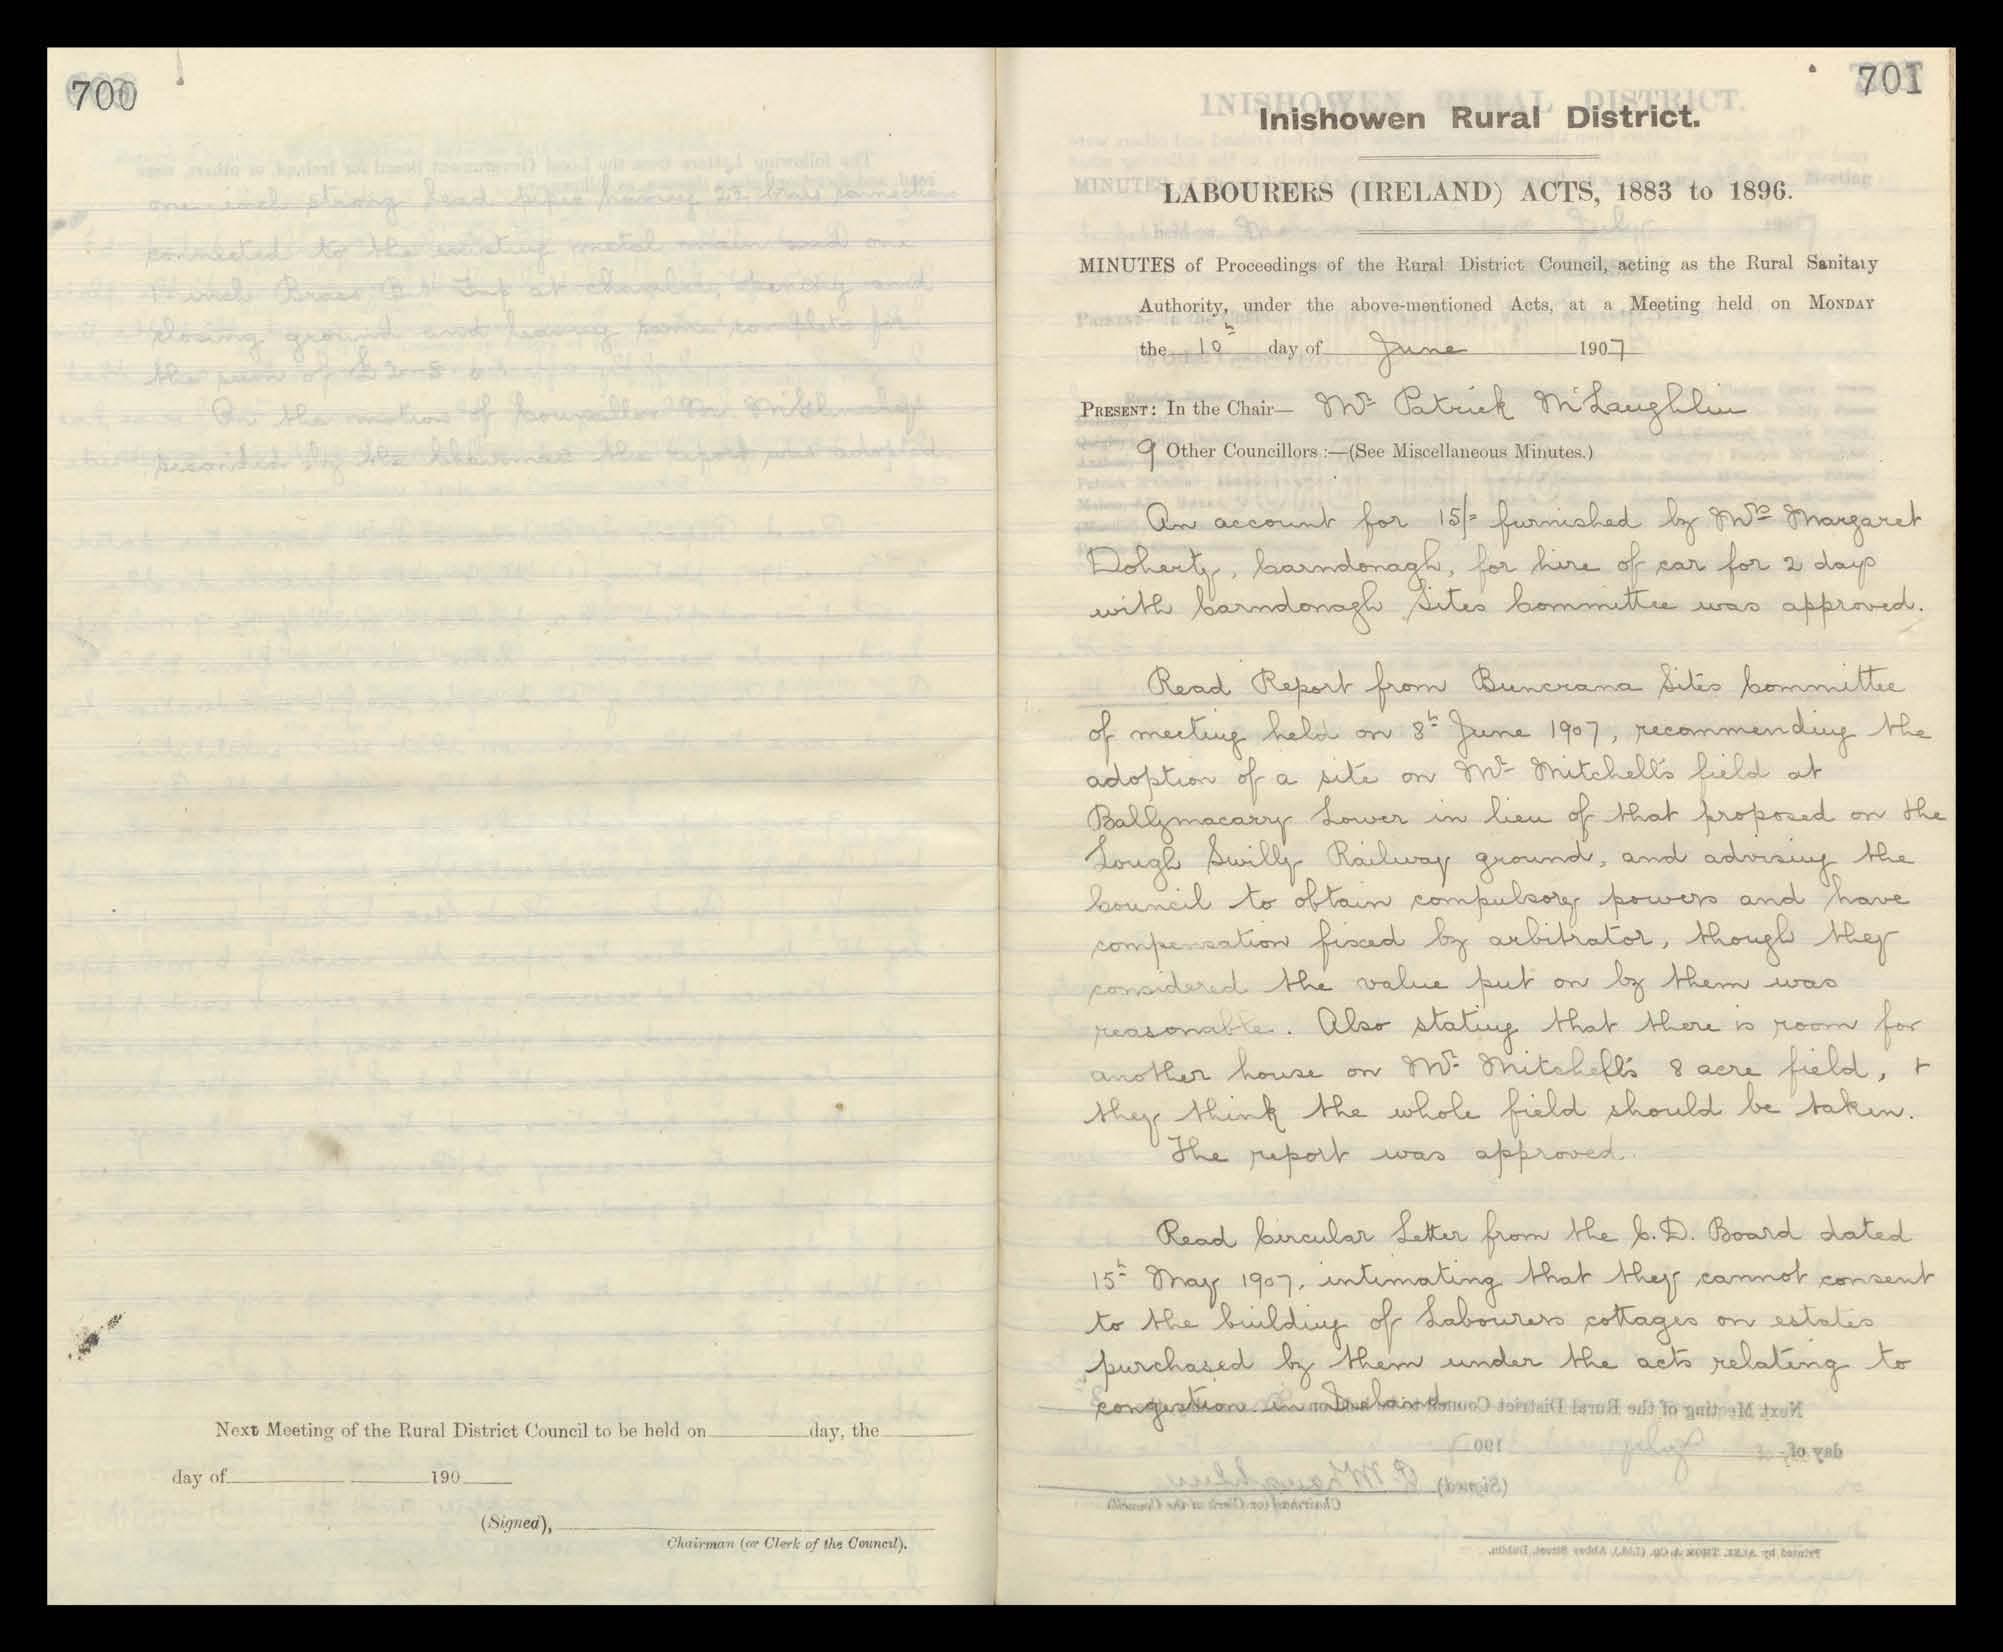 700
one inch strong lead pipe having
connected to the existing metal main and one
closing ground and leaving same complete for
the sum of £2-5-0
On the motion of Councillor
seconded by the Chairman the report was adopted.
Next Meeting of the Rural District Council to be held on day, the
day of 190
(Signed),
Chairman (or Clerk of the Council).
701
Inishowen Rural District.
LABOURERS (IRELAND) ACTS, 1883 to 1896.
MINUTES of Proceedings of the Rural District Council, acting as the Rural Sanitary
Authority, under the above-mentioned Acts, at a Meeting held on MONDAY
the 10th day of June 1907
PRESENT: In the Chair— Mr Patrick McLaughlin
9 Other Councillors :—(See Miscellaneous Minutes.)
An account for 15/= furnished by Mrs Margaret
Doherty, Carndonagh, for hire of car for 2 days
with Carndonagh Sites Committee was approved.
Read Report from Buncrana Sites Committee
of meeting held on 8th June 1907, recommending the
adoption of a site on Mr Mitchell's field at
Ballymacarry Lower in lieu of that proposed on the
Lough Swilly Railway ground, and advising the
Council to obtain compulsory powers and have
compensation fixed by arbitrator, though they
considered the value put on by them was
reasonable. Also stating that there is room for
another house on Mr Mitchell's 8 acre field, +
they think the whole field should be taken.
The report was approved.
Read Circular Letter from the C.D. Board dated
15th May 1907, intimating that they cannot consent
to the building of Labourers cottages on estates
purchased by them under the acts relating to
congestion in Ireland.